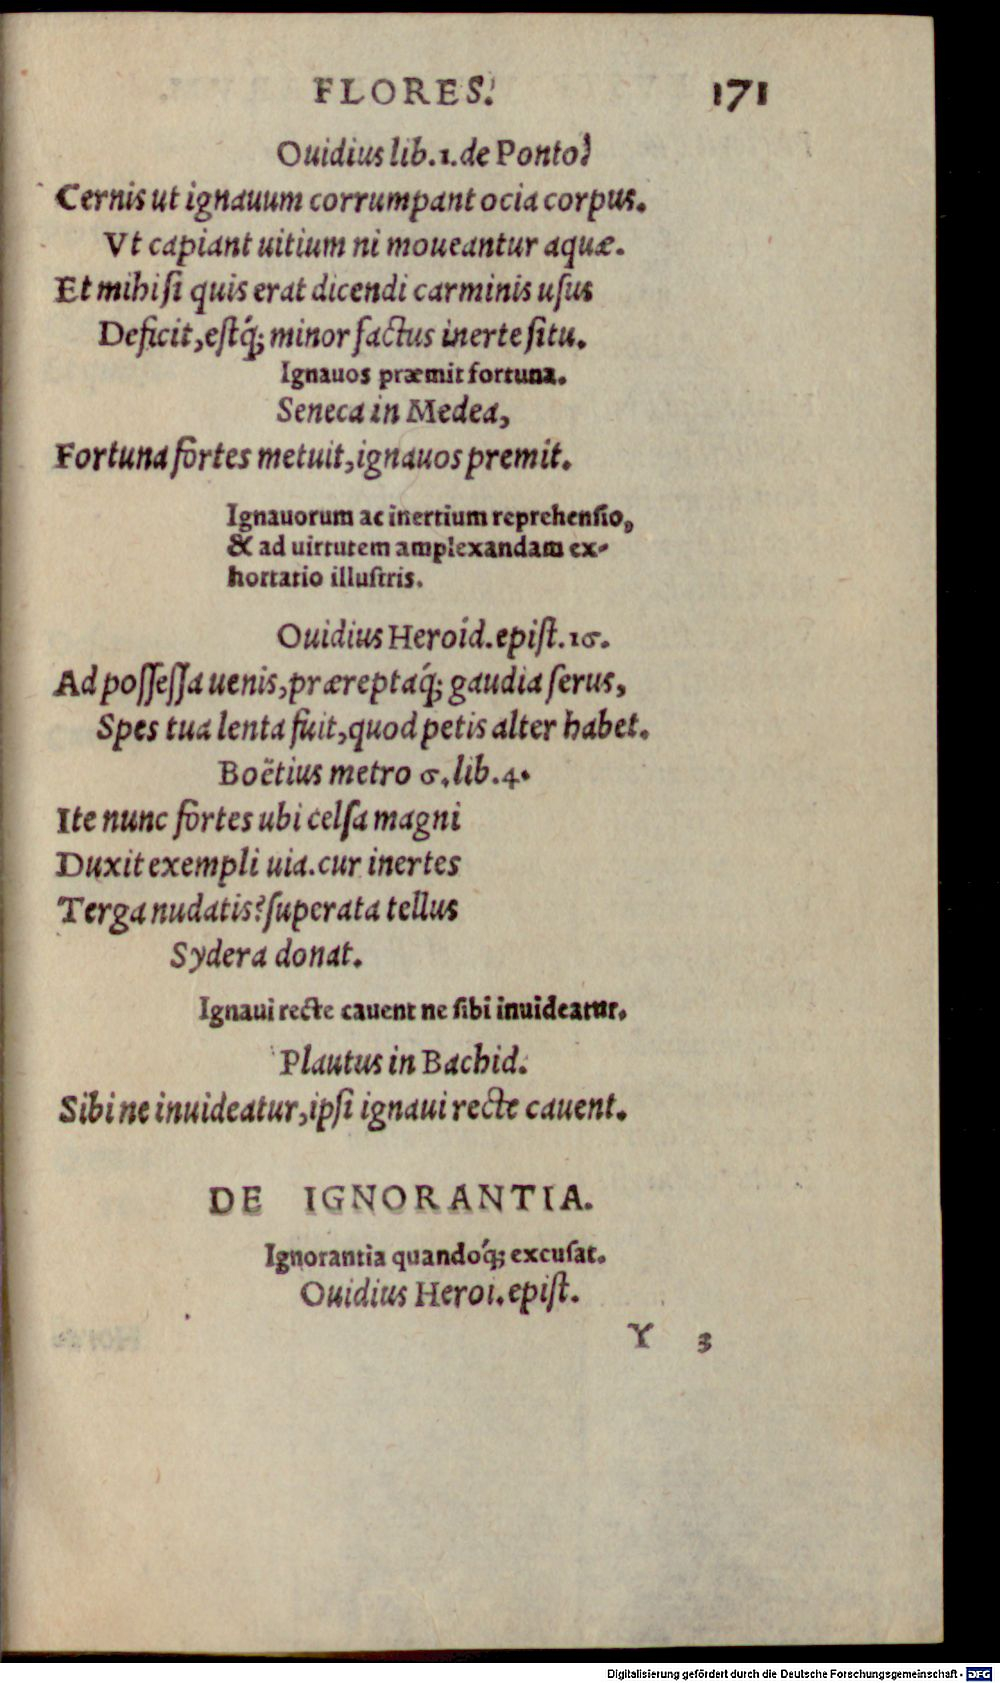 FLORES.
171
Ouidius lib.1.de Ponto.
Cernis ut ignauum corrumpant ocia corpus.
Vt capiant uitium ni moueantur aquæ.
Et mihi ſi quis erat dicendi carminis uſus
Deficit,eſtq́; minor factus inerte ſitu.
Ignauos præmit fortuna.
Seneca in Medea,
Fortuna fortes metuit,ignauos premit.
Ignauorum ac inertium reprehenſio,
& ad uirtutem amplexandam ex-
hortatio illuſtris.
Ouidius Heroid.epiſt.16.
Ad poſſeſſa uenis,præreptaq́; gaudia ſerus,
Spes tua lenta fuit,quod petis alter habet.
Boëtius metro 6.lib.4.
Ite nunc fortes ubi celſa magni
Duxit exempli uia.cur inertes
Terga nudatis?ſuperata tellus
Sydera donat.
Ignaui recte cauent ne ſibi inuideatur.
Plautus in Bachid.
Sibi ne inuideatur,ipſi ignaui recte cauent.
DE IGNORANTIA.
Ignorantia quandoq́; excuſat.
Ouidius Heroi.epiſt.
Y 3
Digitalisierung gefördert durch die Deutsche Forschungsgemeinschaft - DFG